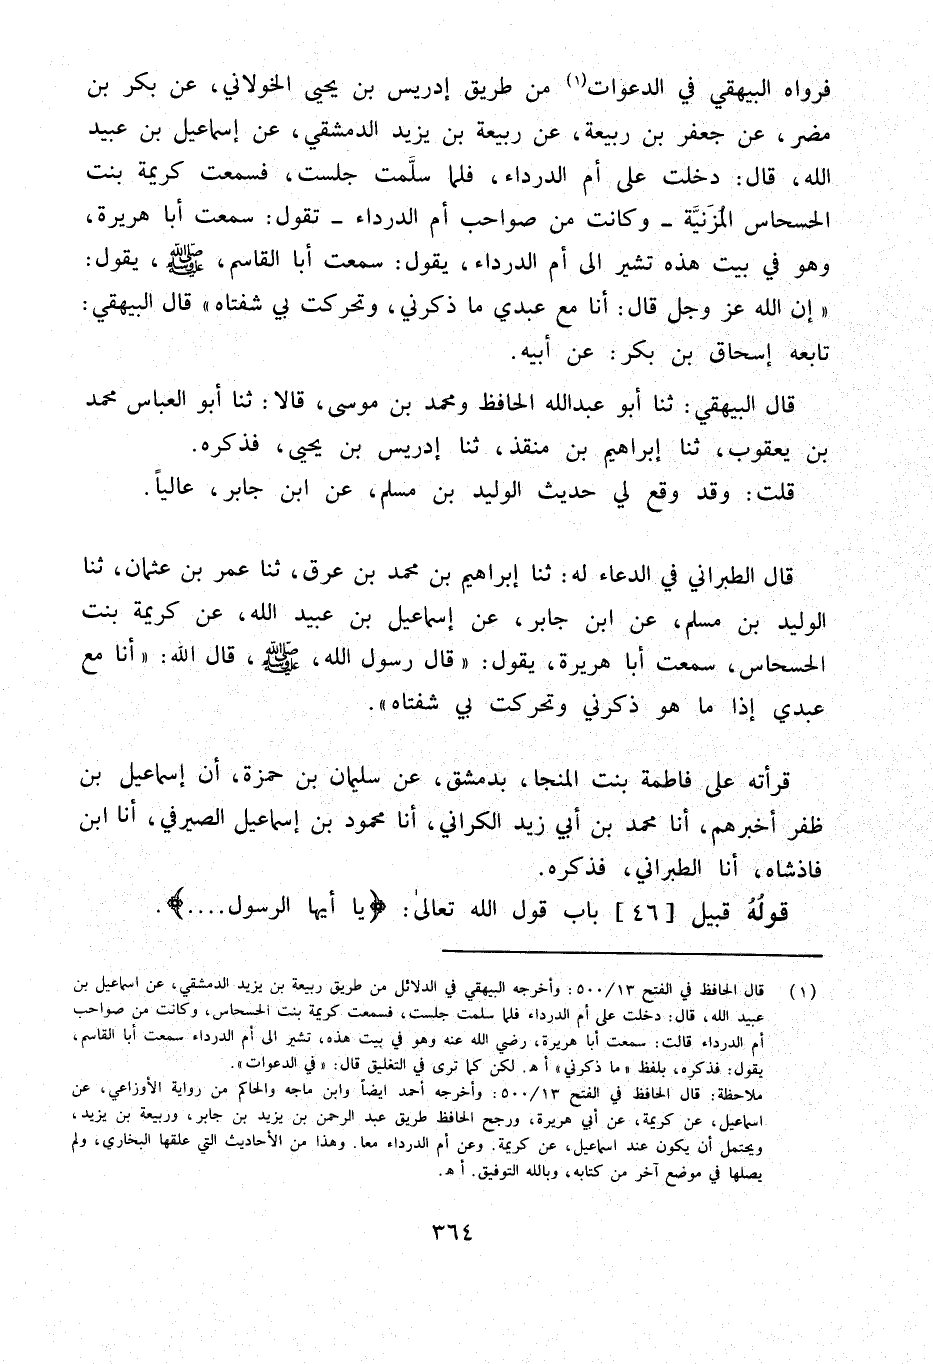 فرواه البيهقي في الدعوات(١) من طريق إدريس بن يحيى الخولاني، عن بكر بن
مضر، عن جعفر بن ربيعة، عن ربيعة بن يزيد الدمشقي، عن إسماعيل بن عبيد
الله، قال: دخلت على أم الدرداء، فلما سلَّمت جلست، فسمعت كريمة بنت
الحسحاس المُزَنيَّة ـ وكانت من صواحب أم الدرداء ـ تقول: سمعت أبا هريرة،
وهو في بيت هذه تشير الى أم الدرداء، يقول: سمعت أبا القاسم، ﷺ، يقول:
« إن الله عز وجل قال: أنا مع عبدي ما ذكرني، وتحركت بي شفتاه» قال البيهقي:
تابعه إسحاق بن بكر: عن أبيه.
قال البيهقي: ثنا أبو عبدالله الحافظ ومحمد بن موسى، قالا: ثنا أبو العباس محمد
بن يعقوب، ثنا إبراهيم بن منقذ، ثنا إدريس بن يحيى، فذكره.
قلت: وقد وقع لي حديث الوليد بن مسلم، عن ابن جابر، عالياً.
قال الطبراني في الدعاء له: ثنا إبراهيم بن محمد بن عرق، ثنا عمر بن عثمان، ثنا
الوليد بن مسلم، عن ابن جابر، عن إسماعيل بن عبيد الله، عن كريمة بنت
الحسحاس، سمعت أبا هريرة، يقول: « قال رسول الله، ﷺ، قال الله: « أنا مع
عبدي إذا ما هو ذكرني وتحركت بي شفتاه».
قرأته على فاطمة بنت المنجا، بدمشق، عن سليمان بن حمزة، أن إسماعيل بن
ظفر أخبرهم، أنا محمد بن أبي زيد الكراني، أنا محمود بن إسماعيل الصيرفي، أنا ابن
فاذشاه، أنا الطبراني، فذكره.
قولُهُ قبيل [٤٦] باب قول الله تعالىٰ: ﴿يا أيها الرسول....﴾.
(١) قال الحافظ في الفتح ٥٠٠/١٣: وأخرجه البيهقي في الدلائل من طريق ربيعة بن يزيد الدمشقي، عن اسماعيل بن
عبيد الله، قال: دخلت على أم الدرداء فلما سلمت جلست، فسمعت كريمة بنت الحسحاس، وكانت من صواحب
أم الدرداء قالت: سمعت أبا هريرة، رضي الله عنه وهو في بيت هذه، تشير الى أم الدرداء سمعت أبا القاسم،
يقول: فذكره، بلفظ « ما ذكرني» أ هـ. لكن كما ترى في التغليق قال: « في الدعوات».
ملاحظة: قال الحافظ في الفتح ٥٠٠/١٣: وأخرجه أحمد ايضاً وابن ماجه والحاكم من رواية الأوزاعي، عن
اسماعيل، عن كريمة، عن أبي هريرة، ورجح الحافظ طريق عبد الرحمن بن يزيد بن جابر، وربيعة بن يزيد،
ويحتمل أن يكون عند اسماعيل، عن كريمة. وعن أم الدرداء معا. وهذا من الأحاديث التي علقها البخاري، ولم
يصلها في موضع آخر من كتابه، وبالله التوفيق. أ هـ.
٣٦٤